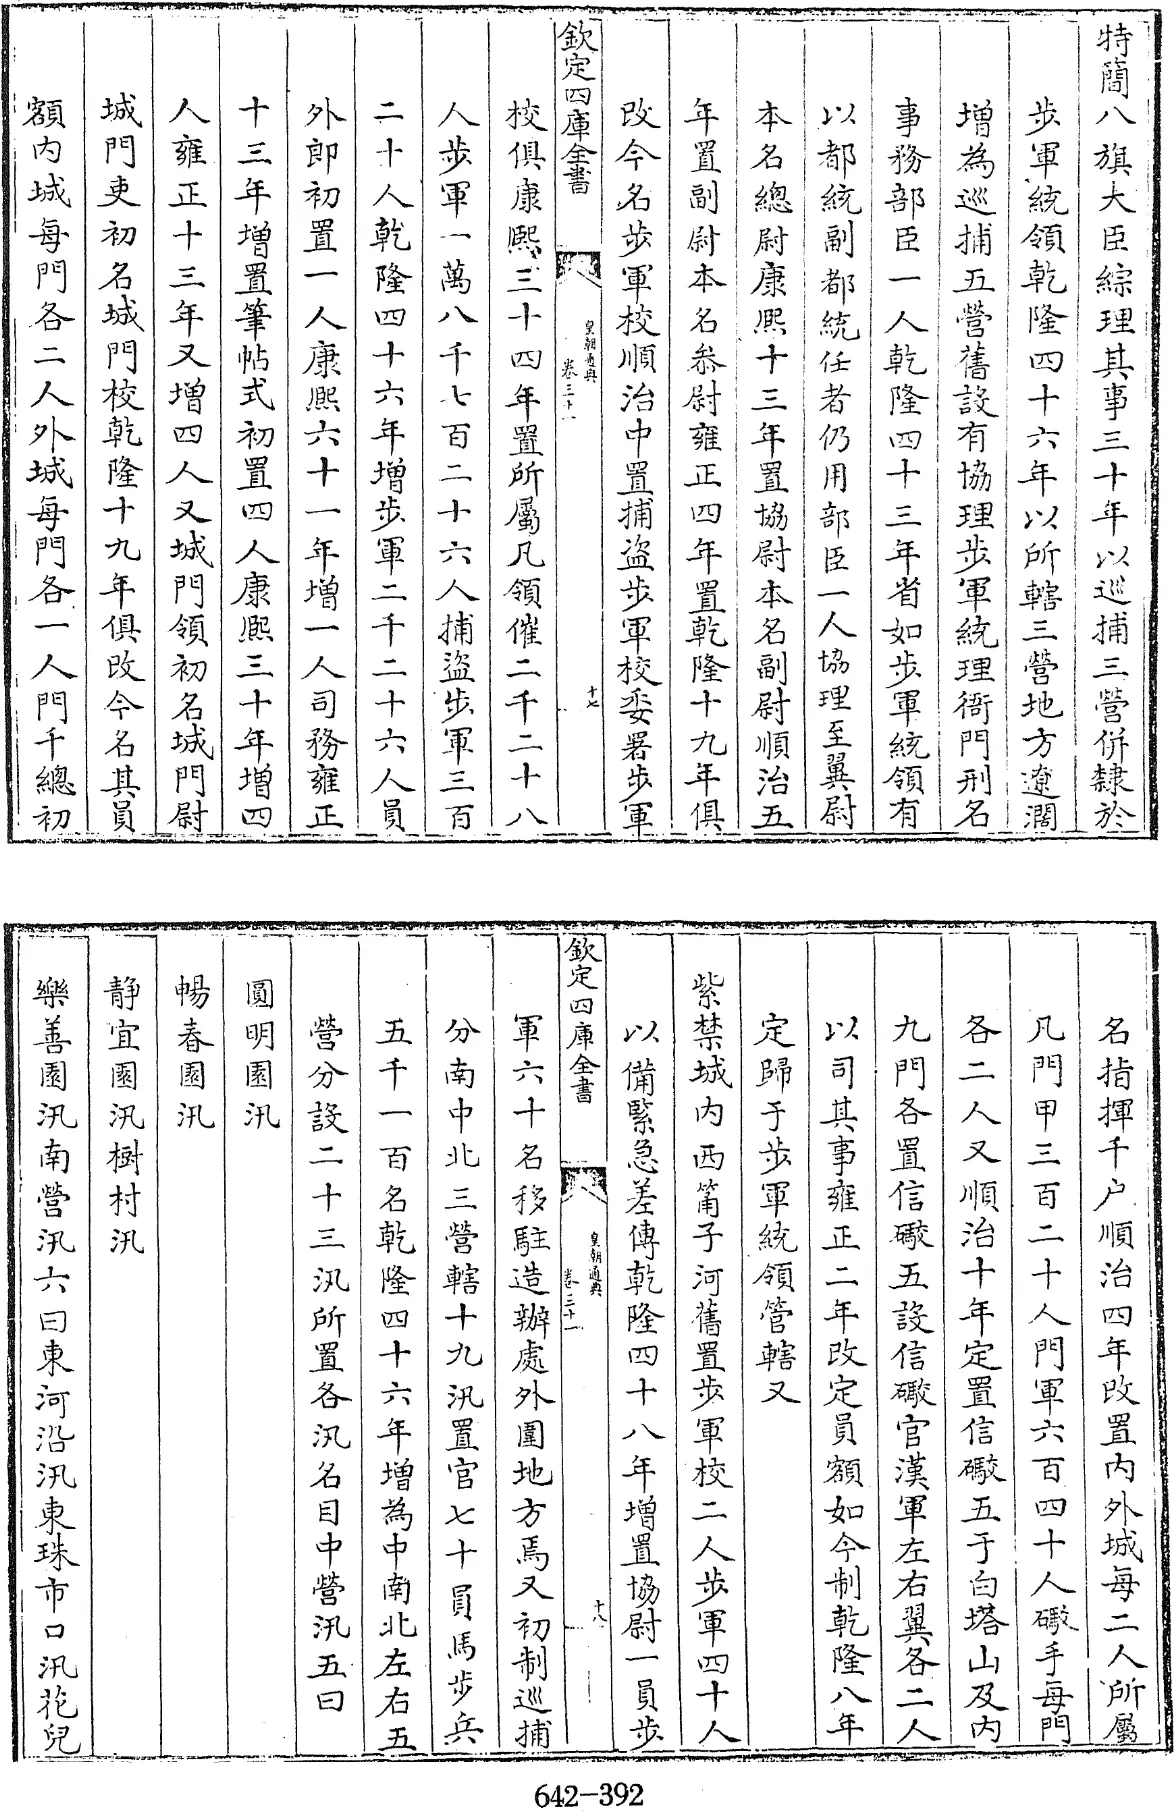 特簡八旗大臣綜理其事三十年以巡捕三營併隸於
步軍統領乾隆四十六年以所轄三營地方遼濶
增為巡捕五營舊設有協理步軍統理衙門刑名
事務部臣一人乾隆四十三年省如步軍統領有
以都統副都統任者仍用部臣一人協理至翼尉
本名總尉康熙十三年置協尉本名副尉順治五
年置副尉本名叅尉雍正四年置乾隆十九年俱
改今名步軍校順治中置捕盜步軍校委署步軍
欽定四庫全書
皇朝通典
卷三十一
十七
校俱康熙三十四年置所屬凡領催二千二十八
人步軍一萬八千七百二十六人捕盜步軍三百
二十人乾隆四十六年增步軍二千二十六人員
外郎初置一人康熙六十一年增一人司務雍正
十三年增置筆帖式初置四人康熙三十年增四
人雍正十三年又增四人又城門領初名城門尉
城門吏初名城門校乾隆十九年俱改今名其員
額內城每門各二人外城每門各一人門千總初
名指揮千户順治四年改置內外城每二人所屬
凡門甲三百二十人門軍六百四十人礮手每門
各二人又順治十年定置信礮五于白塔山及內
九門各置信礮五設信礮官漢軍左右翼各二人
以司其事雍正二年改定員額如今制乾隆八年
定歸于步軍統領管轄又
紫禁城內西筩子河舊置步軍校二人步軍四十人
以備緊急差傳乾隆四十八年增置協尉一員步
欽定四庫全書
皇朝通典
卷三十一
十八
軍六十名移駐造辦處外圍地方焉又初制巡捕
分南中北三營轄十九汛置官七十員馬步兵
五千一百名乾隆四十六年增為中南北左右五
營分設二十三汛所置各汛名目中營汛五曰
圓明園汛
暢春園汛
靜宜園汛樹村汛
樂善園汛南營汛六曰東河沿汛東珠市口汛花兒
642-392